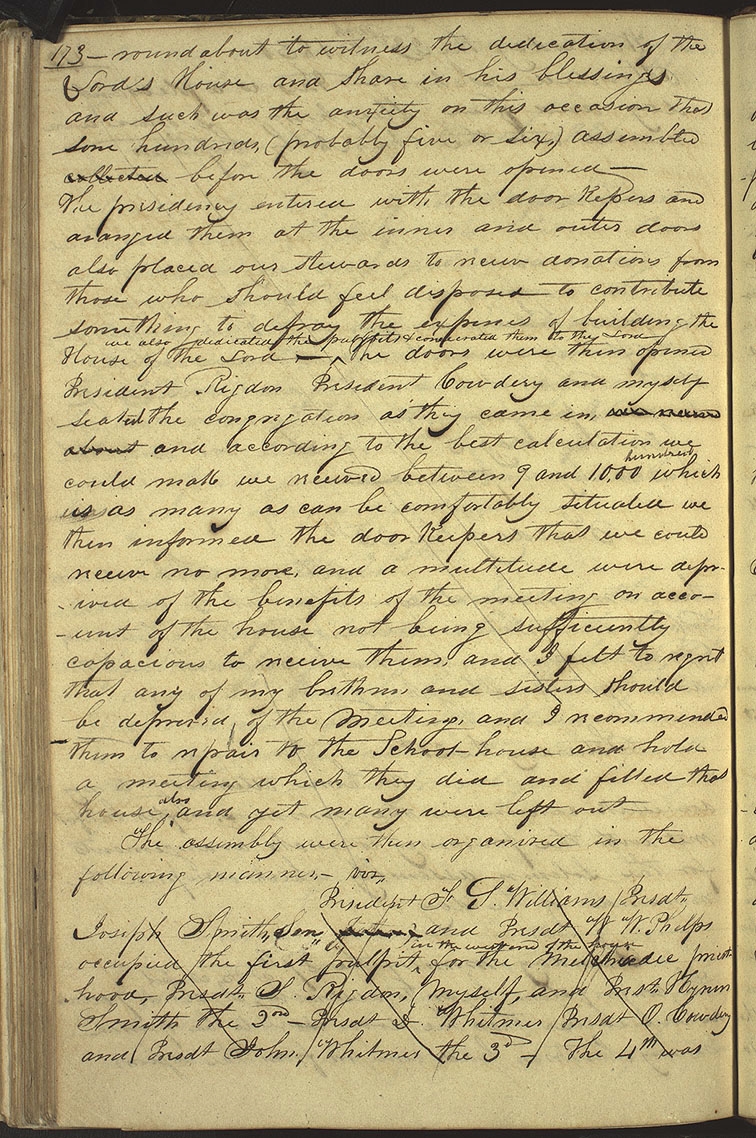 173— roundabout to witness the dedication of the
Lord's House and share in his blessings
and such was the anxiety on this occasion that
some hundreds, (probably five or six,) assembled
collected before the doors were opened—
The presidency entered with the door kepers and
aranged them at the inner and outer doors
also placed our stewards to receiv donations from
those who should feel disposed to contribute
something to defray the expenses of building the
we also dedicated the pulpits & consecrated them to the Lord
House of the Lord —^ The doors were then opened
President Rigdon President Cowdery and myself
seated the congregation as they came in,
about and according to the best calculation we
hundred
could make we received between 9 and 10,00 which
is as many as can be comfortably situated we
then informed the door keepers that we could
receive no more, and a multitude were depr-
-ived of the benefits of the meeting on acco-
-unt of the house not being sufficiently
capacious to receive them, and I felt to regret
that any of my brethren and sisters should
be deprived of the meeting, and I recommended
them to repair to the School-house and hold
a meeting which they did and filled that
also
house, and yet many were left out—
The assembly were then organized in the
following manner,— viz.
President F. G. Williams, Presdt.
Joseph Smith, Sen and Presdt W. W. Phelps
in the west end of the house
occupied the first pulpit, for the Melchisedec priest-
hood, Presdt. S. Rigdon, myself, and Prest. Hyrum
Smith the 2nd— Presdt D. Whitmer Presdt O. Cowdery
and Presdt John Whitmer the 3d— The 4th was